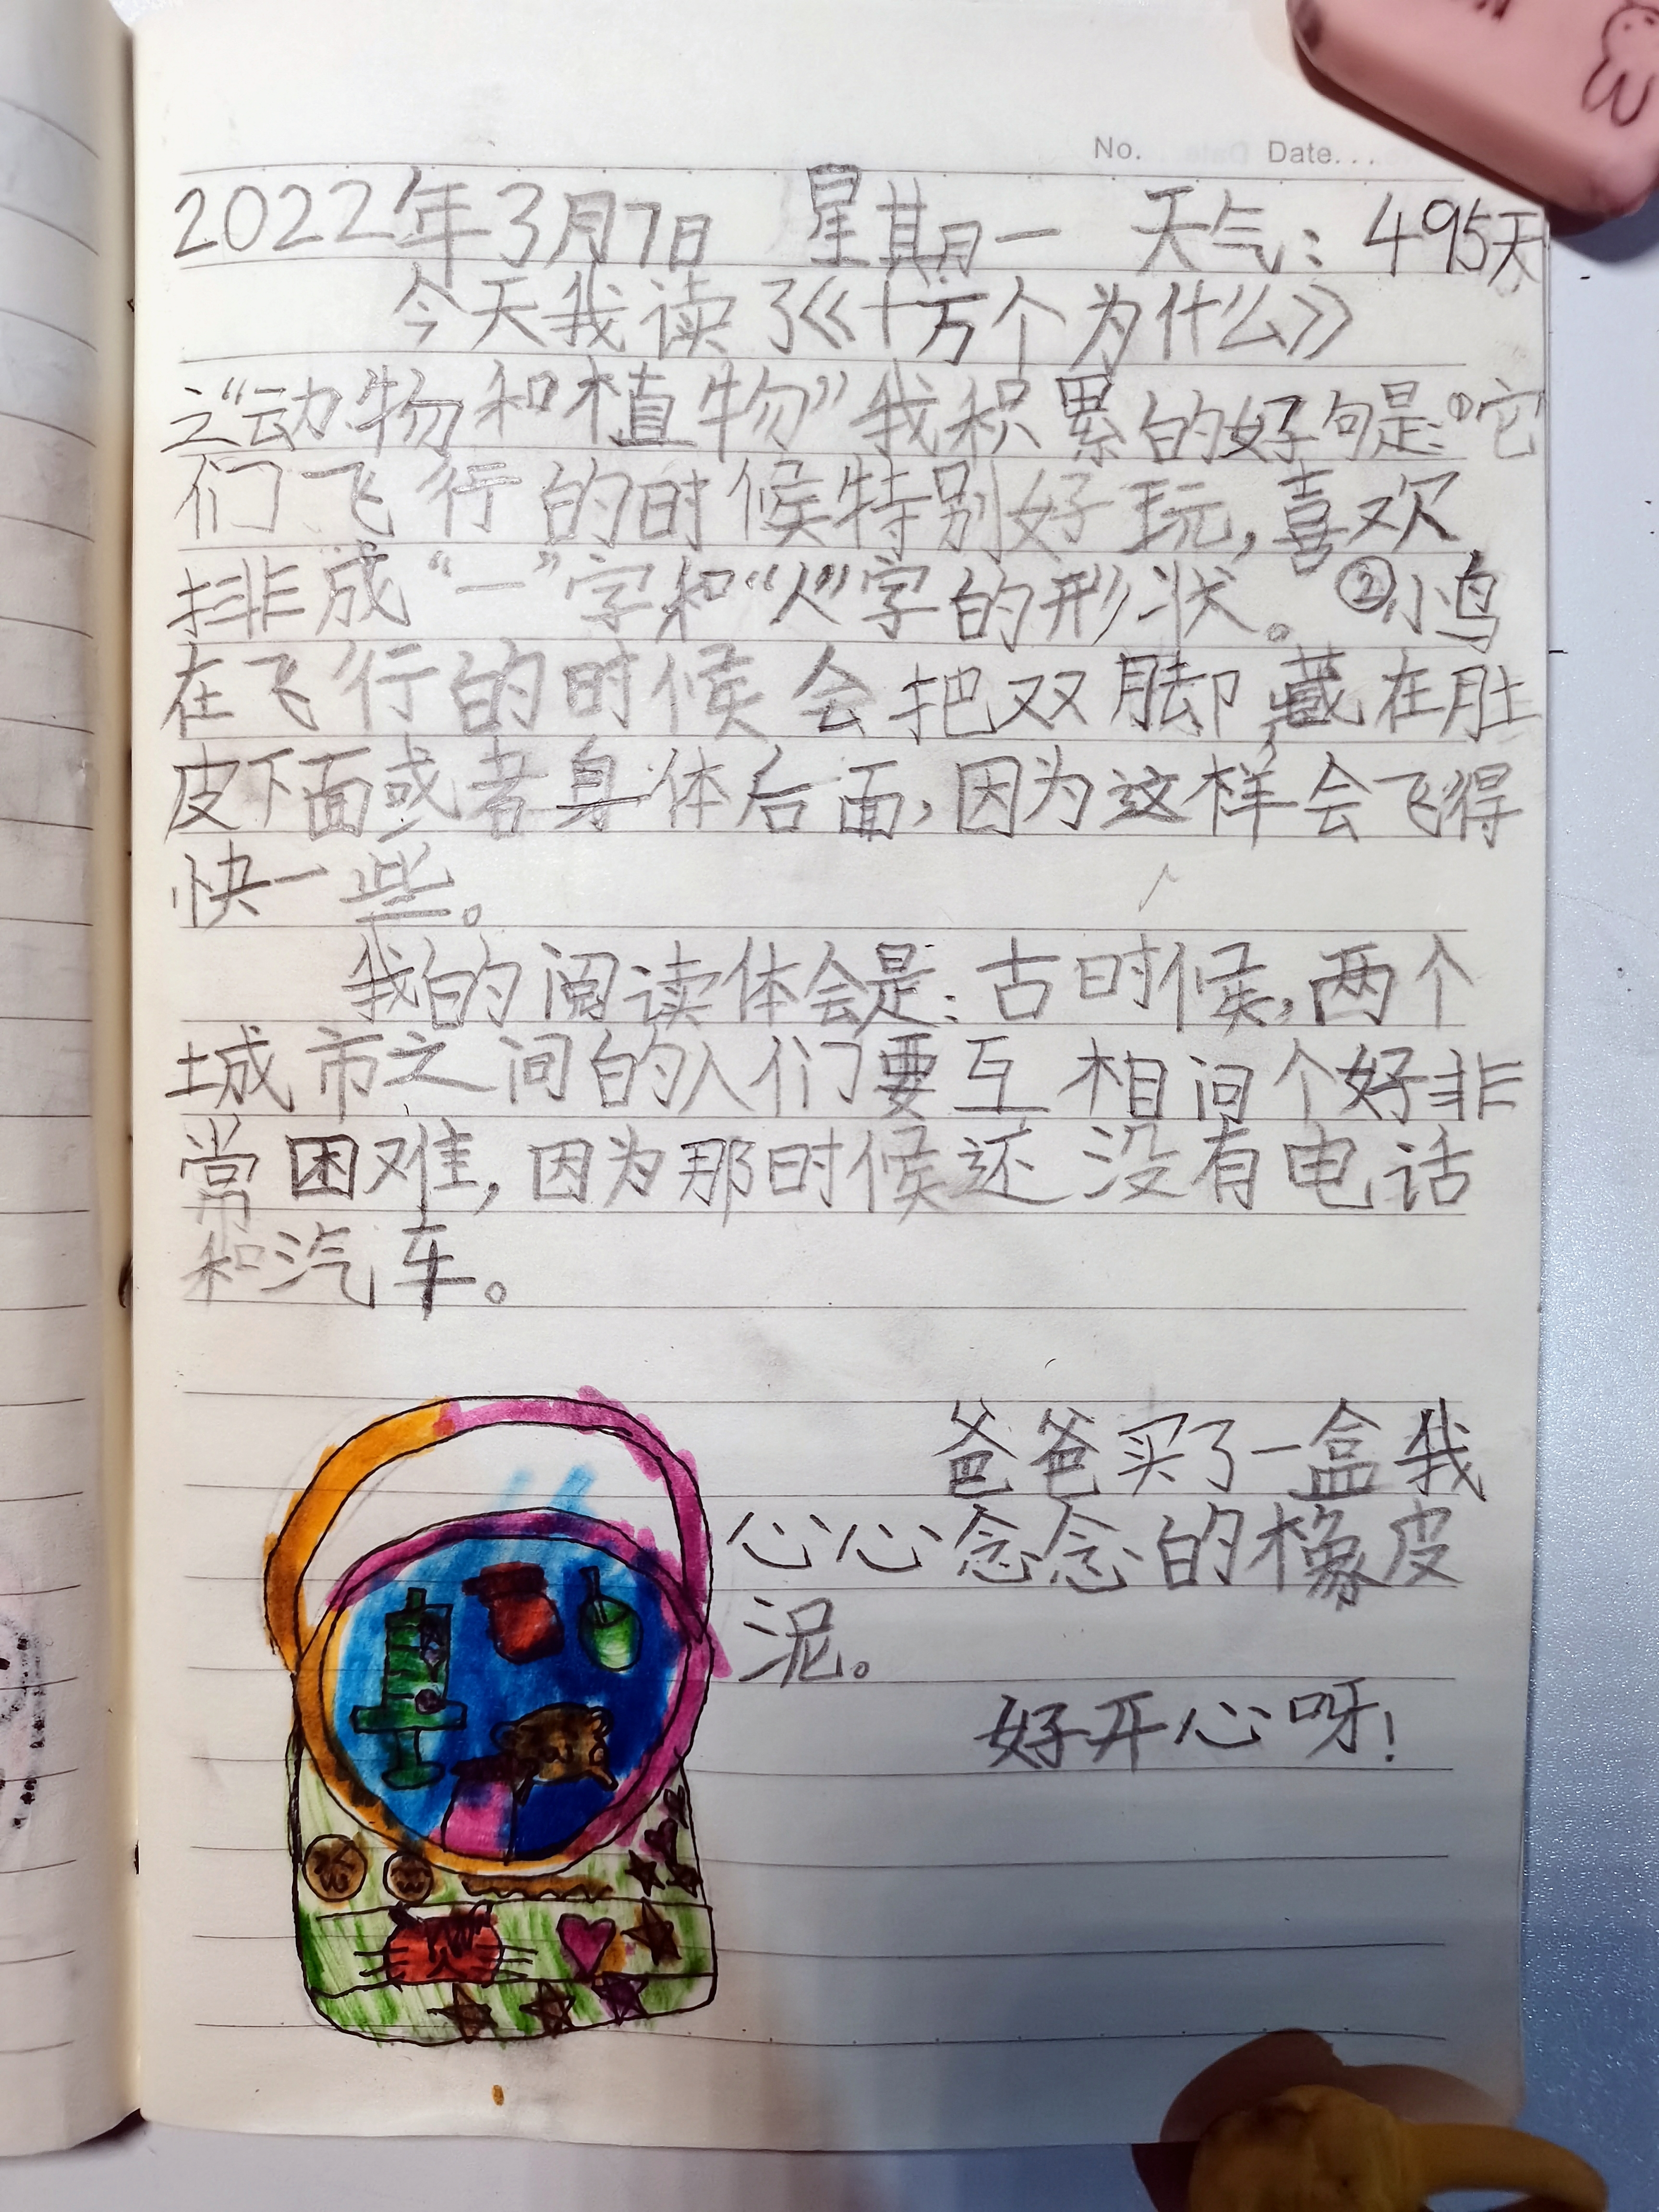 No. Date...
2022年3月7日 星期一 天气: 495天
今天我读了《十万个为什么》
之“动物和植物”我积累的好句是:①它
们飞行的时候特别好玩,喜欢
排成“一”字和“人”字的形状。②小鸟
在飞行的时候会把双脚藏在肚
皮下面或者身体后面,因为这样会飞得
快一些。
我的阅读体会是:古时候,两个
城市之间的人们要互相问个好非
常困难,因为那时候还没有电话
和汽车。
爸爸买了一盒我
心心念念的橡皮
泥。
好开心呀!